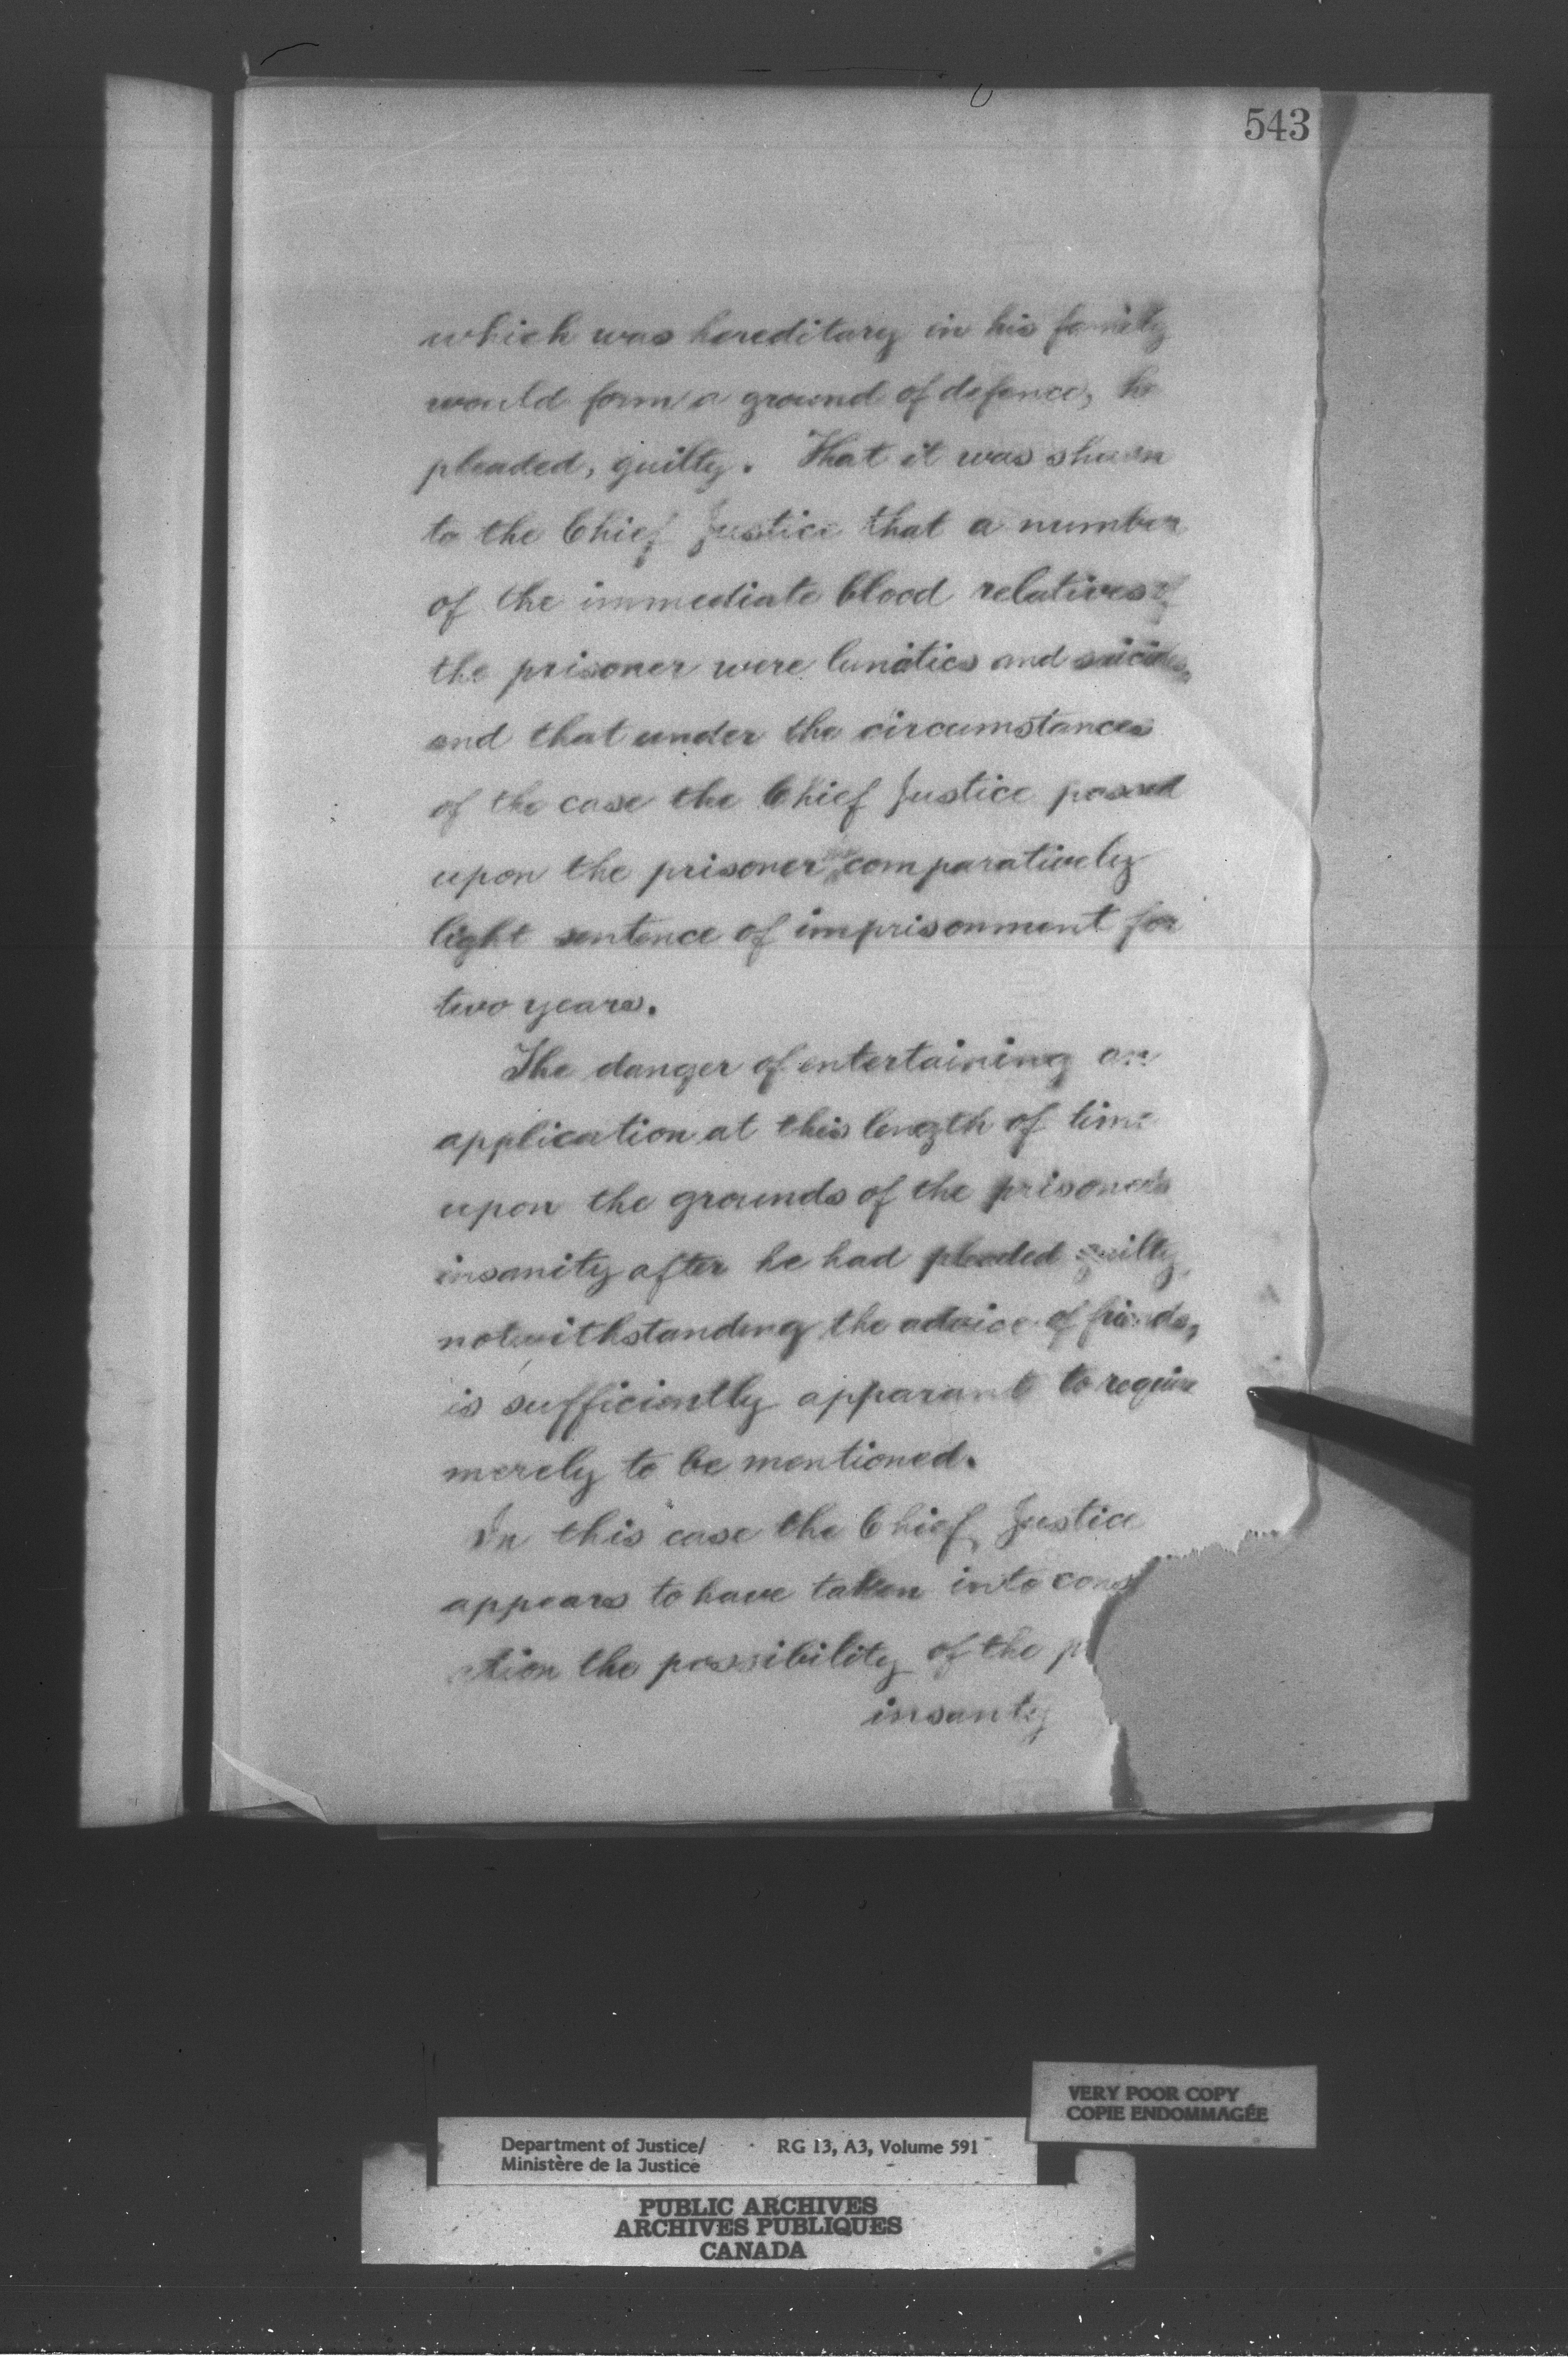 543
which was hereditary in his family
would form a ground of defence, he
pleaded, guilty. That it was shown
to the Chief Justice that a number
of the immediate blood relatives of
the prisoner were lunatics and suicides,
and that under the circumstances
of the case the Chief Justice passed
upon the prisoner the comparatively
light sentence of imprisonment for
two years.
The danger of entertaining an
application at this length of time
upon the grounds of the prisoner's
insanity after he had pleaded guilty,
notwithstanding the advice of friends,
is sufficiently apparant to require
merely to be mentioned.
In this case the Chief Justice
appears to have taken into cons
ation the possibility of the p
insanity
VERY POOR COPY
COPIE ENDOMMAGÉE
Department of Justice/ RG 13, A3, Volume 591
Ministère de la Justice
PUBLIC ARCHIVES
ARCHIVES PUBLIQUES
CANADA